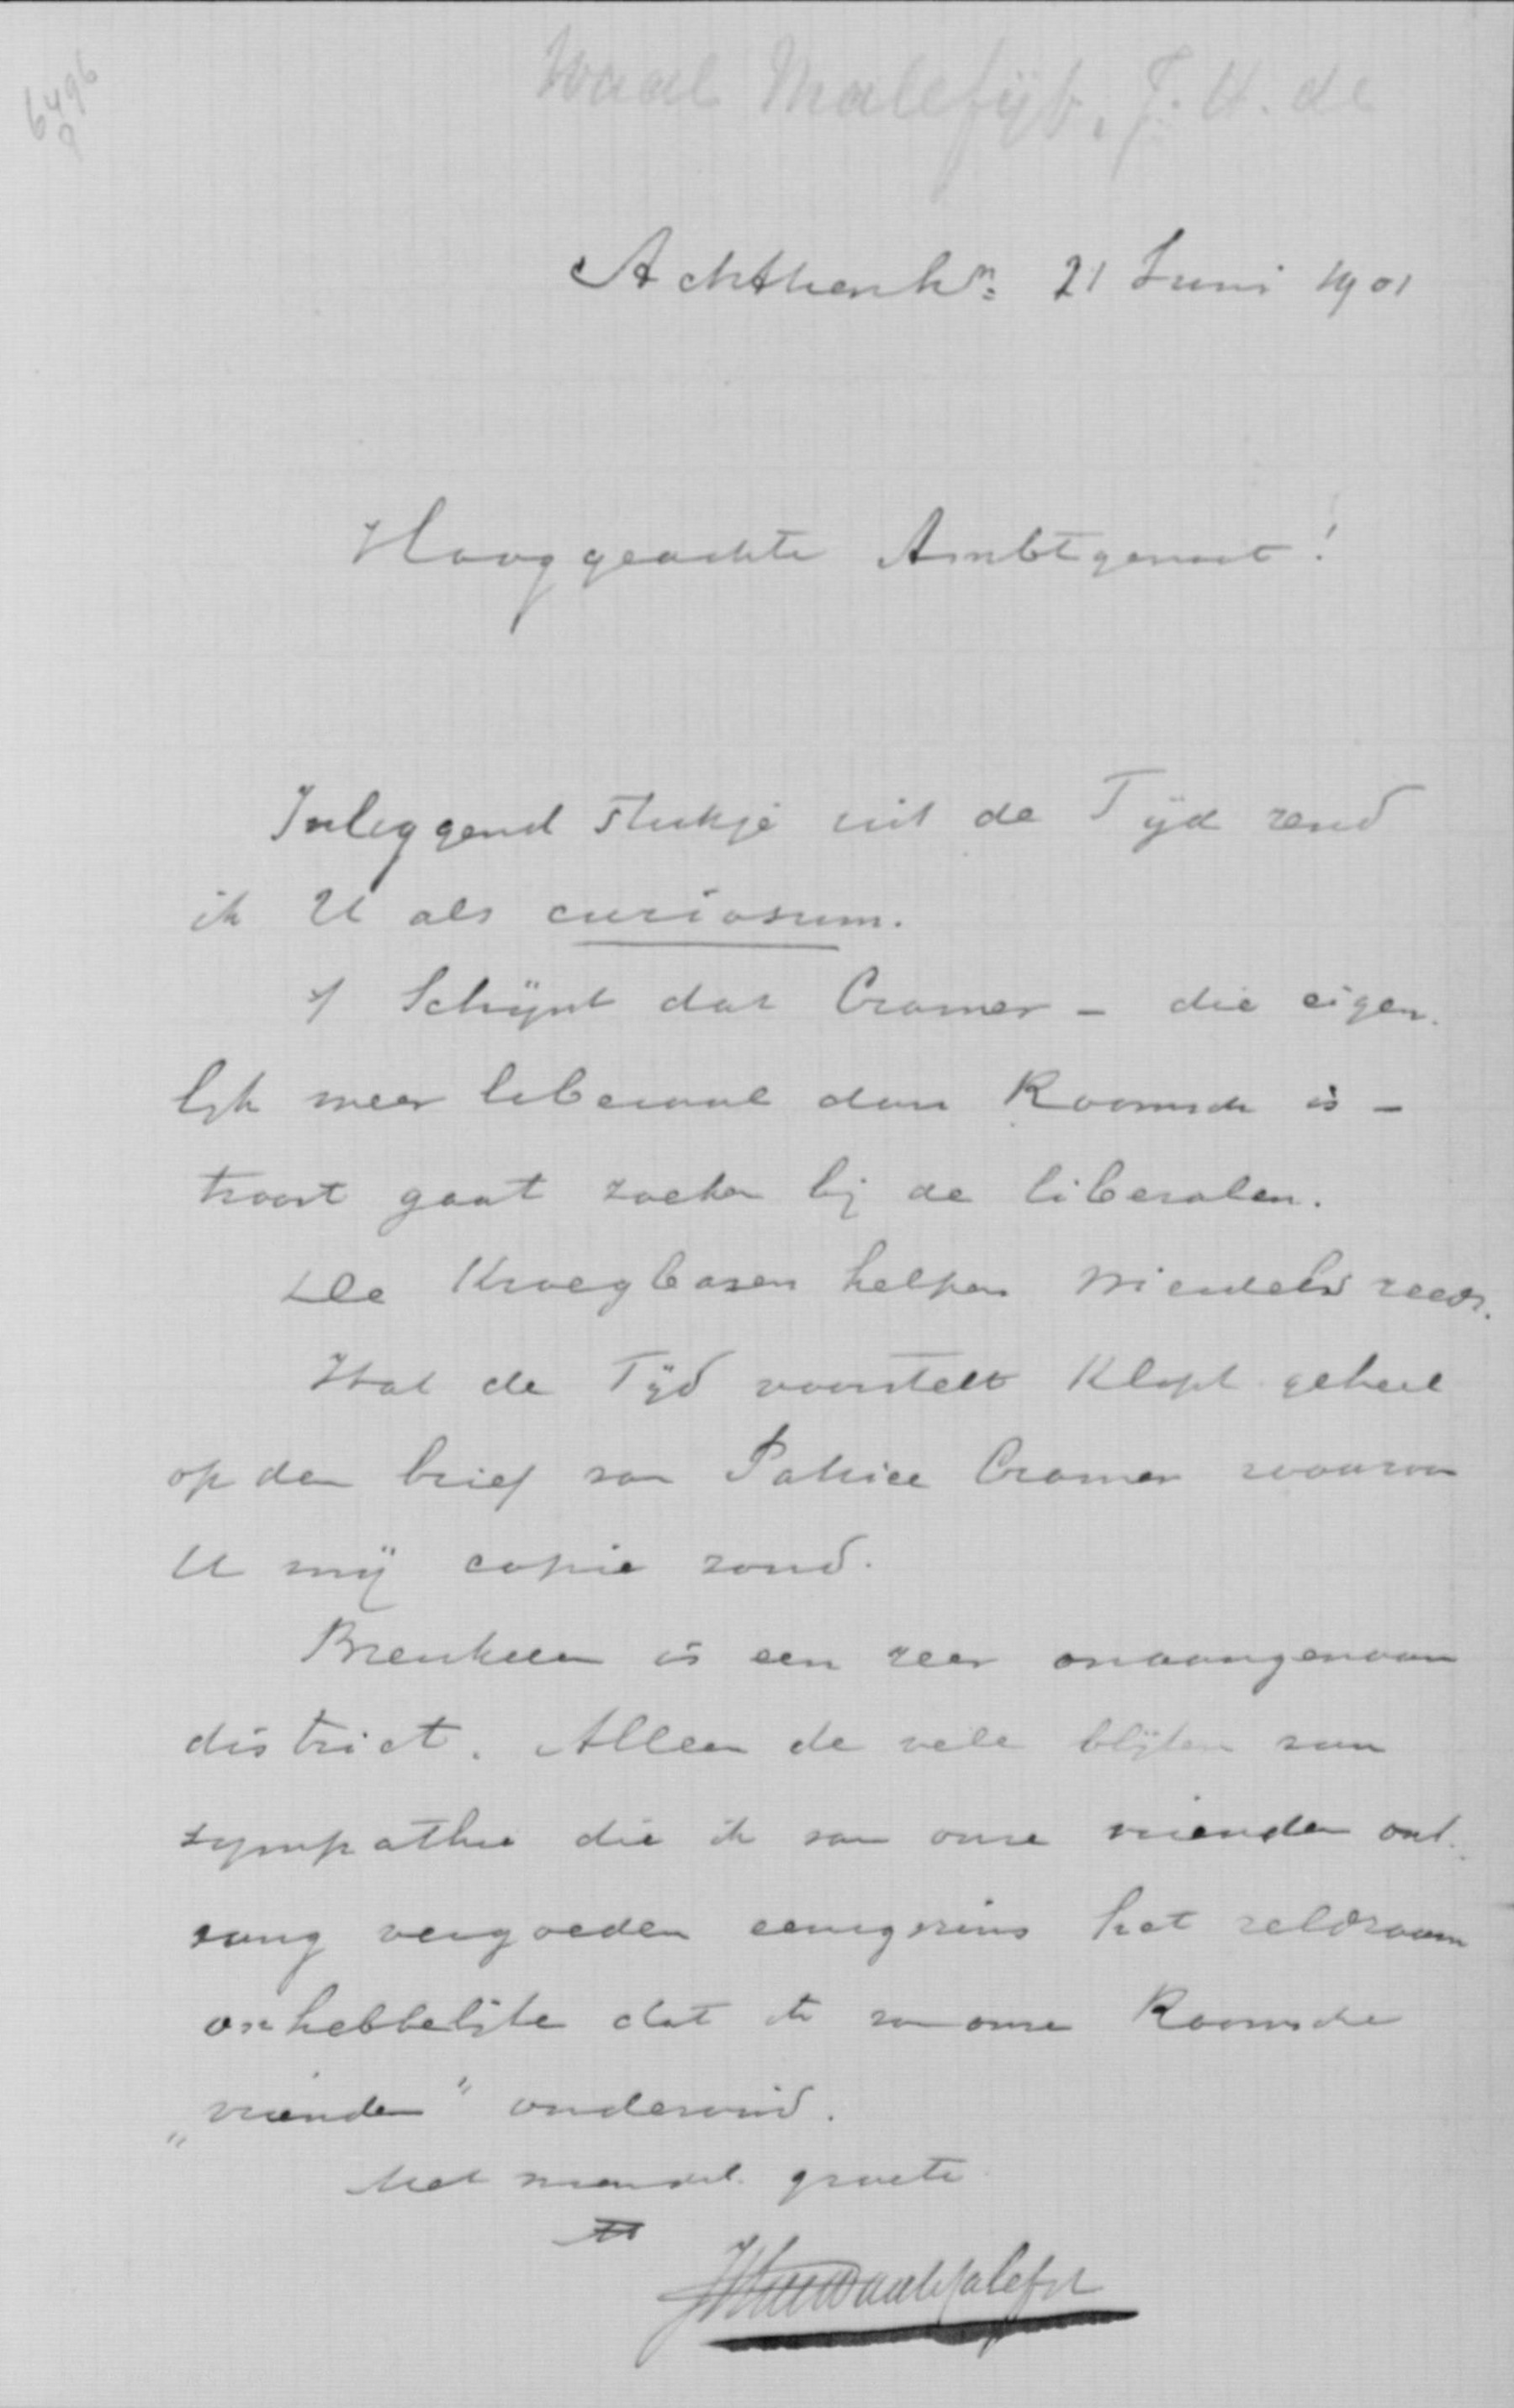 6496
Waal Malefijt, J. H. de
Achttienh^n: 21 Juni 1901
Hooggeachte Ambtgenoot!
Inleggend stukje uit de Tijd zend
ik U als curiosum.
't Schijnt dat Cramer – die eigen-
lijk meer liberaal dan Roomsch is –
troost gaat zoeken bij de liberalen.
De Kroegbazen helpen reeds.
Wat de Tijd voorstelt klopt geheel
op den brief van Patrice Cramer waarvan
U mij copie zond.
Breukelen is een zeer onaangenaam
district. Alleen de vele blijken van
sympathie die ik van onze vrienden ont-
vang vergoeden eenigszins het
onhebbelijke dat ik van onze Roomsche
„vrienden" ondervind.
Met vriendel. groete
JHdeWaalMalefijt